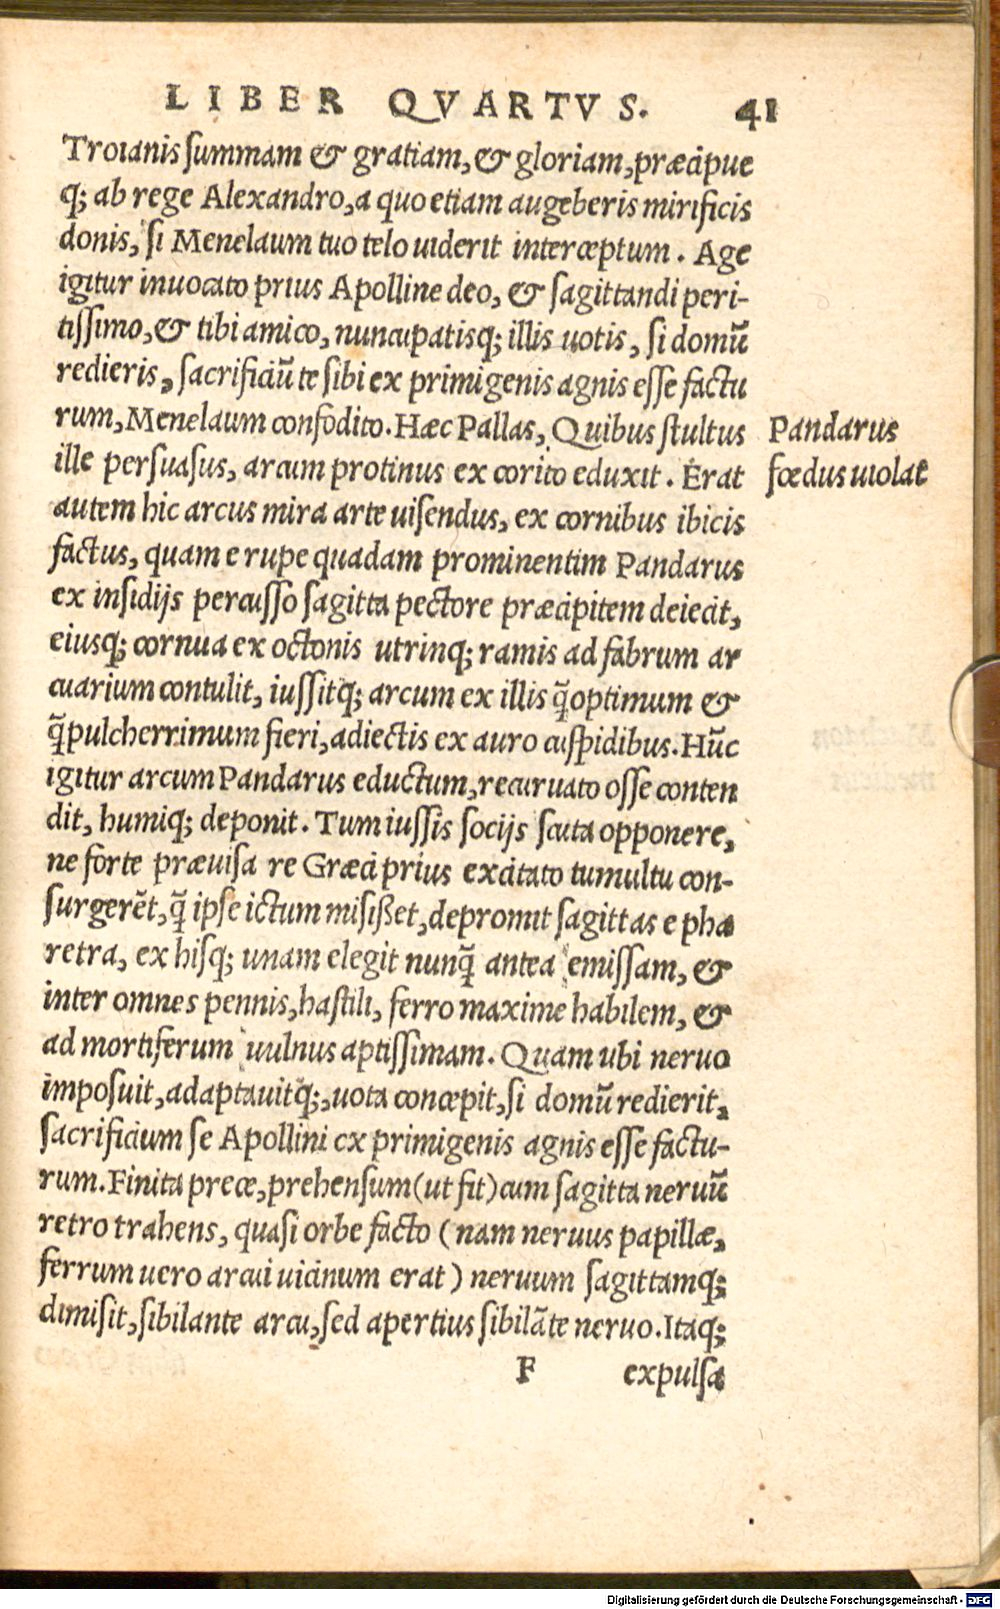 LIBER QVARTVS. 41
Troianis summam & gratiam, & gloriam, præcipue
q; ab rege Alexandro, a quo etiam augeberis mirificis
donis, si Menelaum tuo telo uiderit interceptum. Age
igitur inuocato prius Apolline deo, & sagittandi peri-
tissimo, & tibi amico, nuncupatisq; illis uotis, si domū
redieris, sacrificiū te sibi ex primigenis agnis esse factu
rum, Menelaum confodito. Hæc Pallas, Quibus stultus
Pandarus
ille persuasus, arcum protinus ex corito eduxit. Erat
fœdus uiolat
autem hic arcus mira arte uisendus, ex cornibus ibicis
factus, quam e rupe quadam prominentim Pandarus
ex insidijs percusso sagitta pectore præcipitem deiecit,
eiusq; cornua ex octonis utrinq; ramis ad fabrum ar
cuarium contulit, iussitq; arcum ex illis q̄ optimum &
q̄ pulcherrimum fieri, adiectis ex auro cuspidibus. Hūc
igitur arcum Pandarus eductum, recuruato osse conten
dit, humiq; deponit. Tum iussis socijs scuta opponere,
ne forte præuisa re Græci prius excitato tumultu con-
surgerēt, q̄ ipse ictum misißet, depromit sagittas e pha
retra, ex hisq; unam elegit nunq̄ antea emissam, &
inter omnes pennis, hastili, ferro maxime habilem, &
ad mortiferum uulnus aptissimam. Quam ubi neruo
imposuit, adaptauitq;, uota concepit, si domū redierit,
sacrificium se Apollini ex primigenis agnis esse factu-
rum. Finita prece, prehensum (ut fit) cum sagitta neruū
retro trahens, quasi orbe facto (nam neruus papillæ,
ferrum uero arcui uicinum erat) neruum sagittamq;
dimisit, sibilante arcu, sed apertius sibilāte neruo. Itaq;
F expulsa
Digitalisierung gefördert durch die Deutsche Forschungsgemeinschaft - DFG